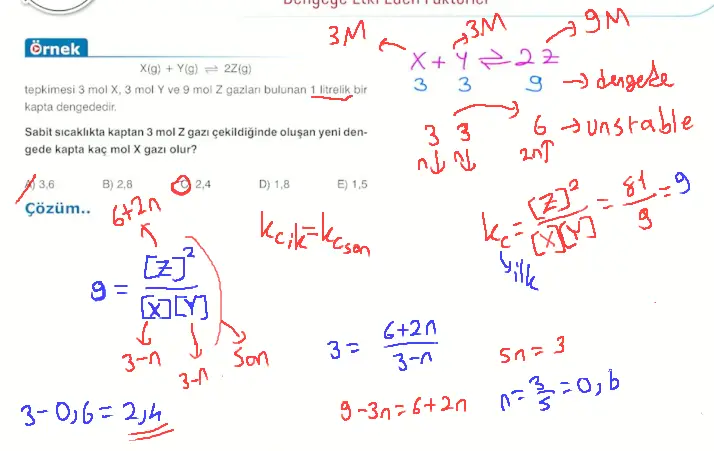 Dengeye Etki Eden Faktörler
Örnek
X(g) + Y(g) ⇌ 2Z(g)
tepkimesi 3 mol X, 3 mol Y ve 9 mol Z gazları bulunan 1 litrelik bir
kapta dengededir.
Sabit sıcaklıkta kaptan 3 mol Z gazı çekildiğinde oluşan yeni den-
gede kapta kaç mol X gazı olur?
A) 3,6 B) 2,8 C) 2,4 D) 1,8 E) 1,5
Çözüm..
3M 3M 9M
X + Y ⇌ 2Z
3 3 9 → dengede
3 3 6 → unstable
n↓ n↓ 2n↑
kc = [Z]² / [X][Y] = 81 / 9 = 9
ilk
kc ilk = kc son
6+2n
9 = [Z]² / [X][Y]
3-n 3-n son
3 = 6+2n / 3-n
9-3n = 6+2n
5n = 3
n = 3/5 = 0,6
3-0,6 = 2,4